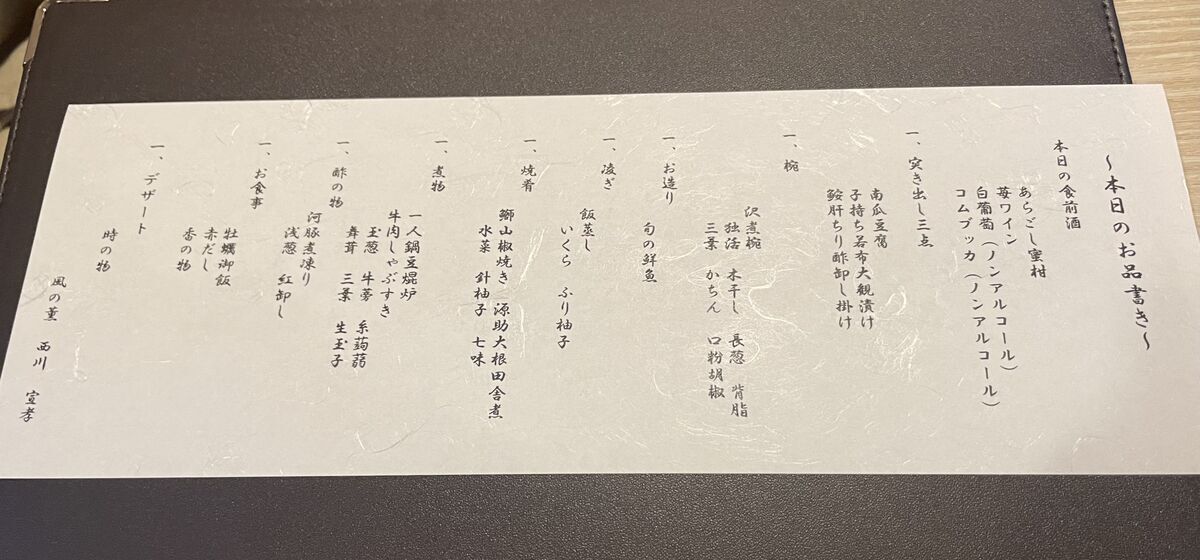 ～本日のお品書き～
本日の食前酒
あらごし蜜柑
苺ワイン
白葡萄（ノンアルコール）
コムブッカ（ノンアルコール）
一、突き出し三点
南瓜豆腐
子持ち若布大観漬け
鮟肝ちり酢卸し掛け
一、椀
沢煮椀
独活 木干し 長葱 背脂
三葉 かちん 口粉胡椒
一、お造り
旬の鮮魚
一、凌ぎ
飯蒸し
いくら ふり柚子
一、焼肴
鰤山椒焼き 源助大根田舎煮
水菜 針柚子 七味
一、煮物
一人鍋豆焜炉
牛肉しゃぶすき
玉葱 牛蒡 糸蒟蒻
舞茸 三葉 生玉子
一、酢の物
河豚煮凍り
浅葱 紅卸し
一、お食事
牡蠣御飯
赤だし
香の物
一、デザート
時の物
風の薫 西川 宣孝